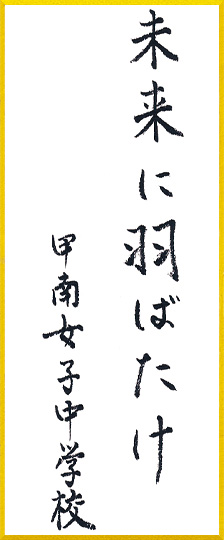 未来に羽ばたけ
甲南女子中学校